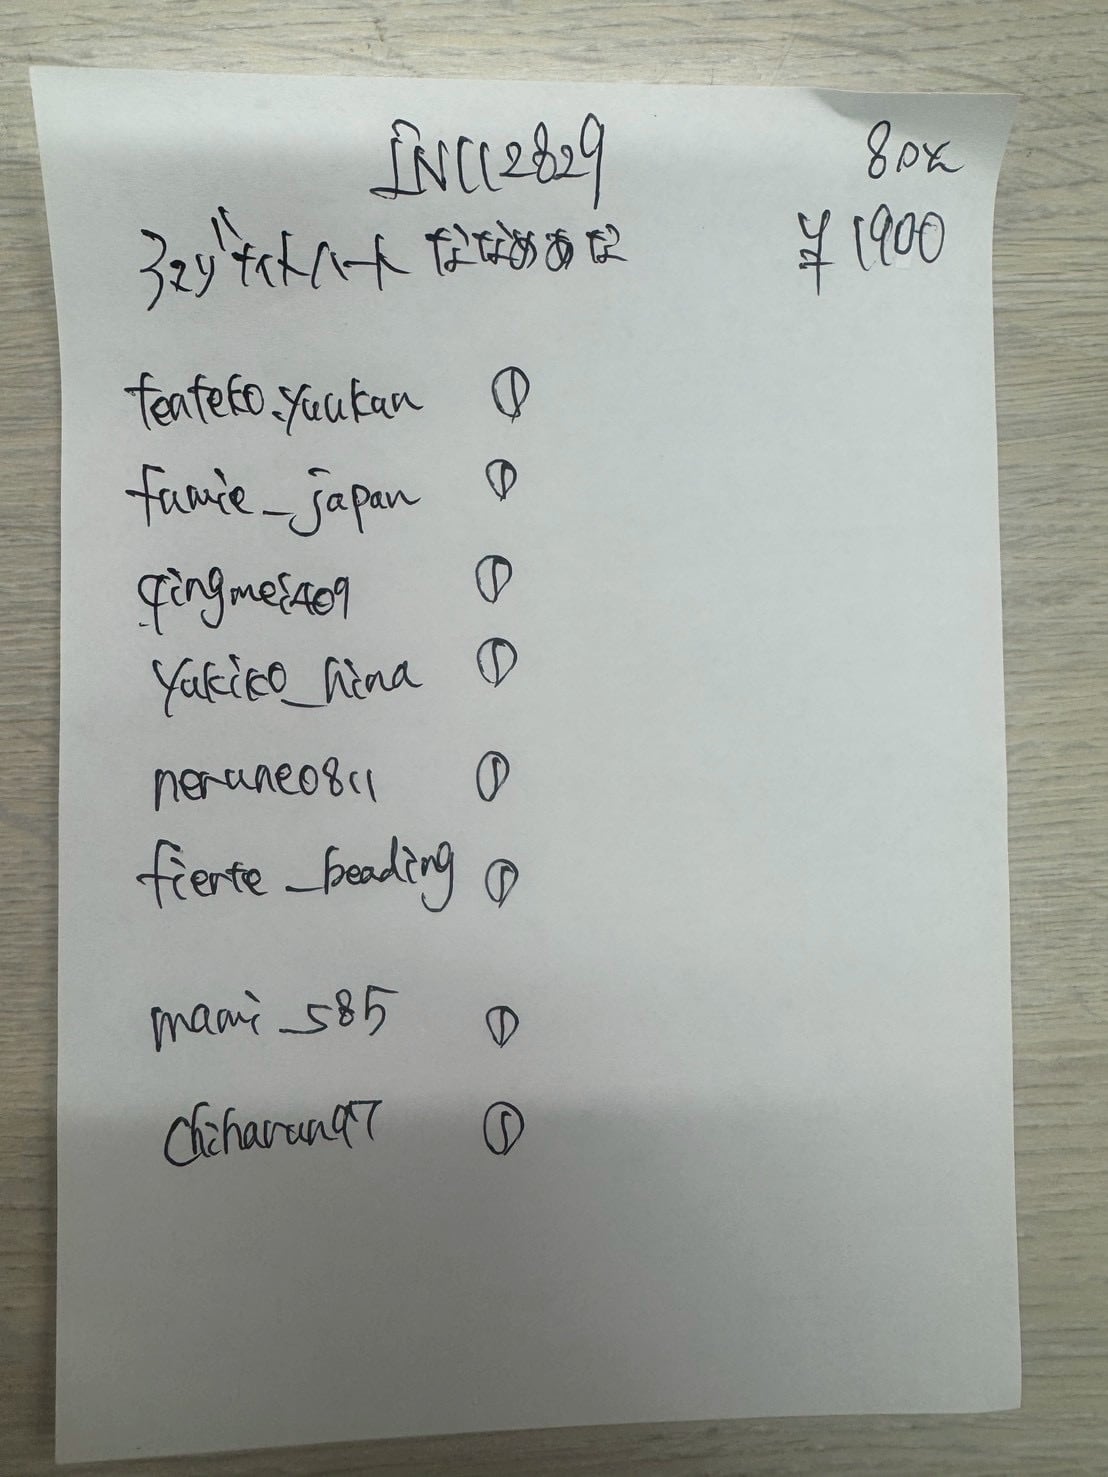 INC12829 80x
¥1900
ハート ななめあな
teateko.yuukan ①
fumie_japan ①
qingmei409 ①
yukiko_hina ①
nerune0811 ①
fierte_beading ①
mami_s85 ①
chiharun97 ①